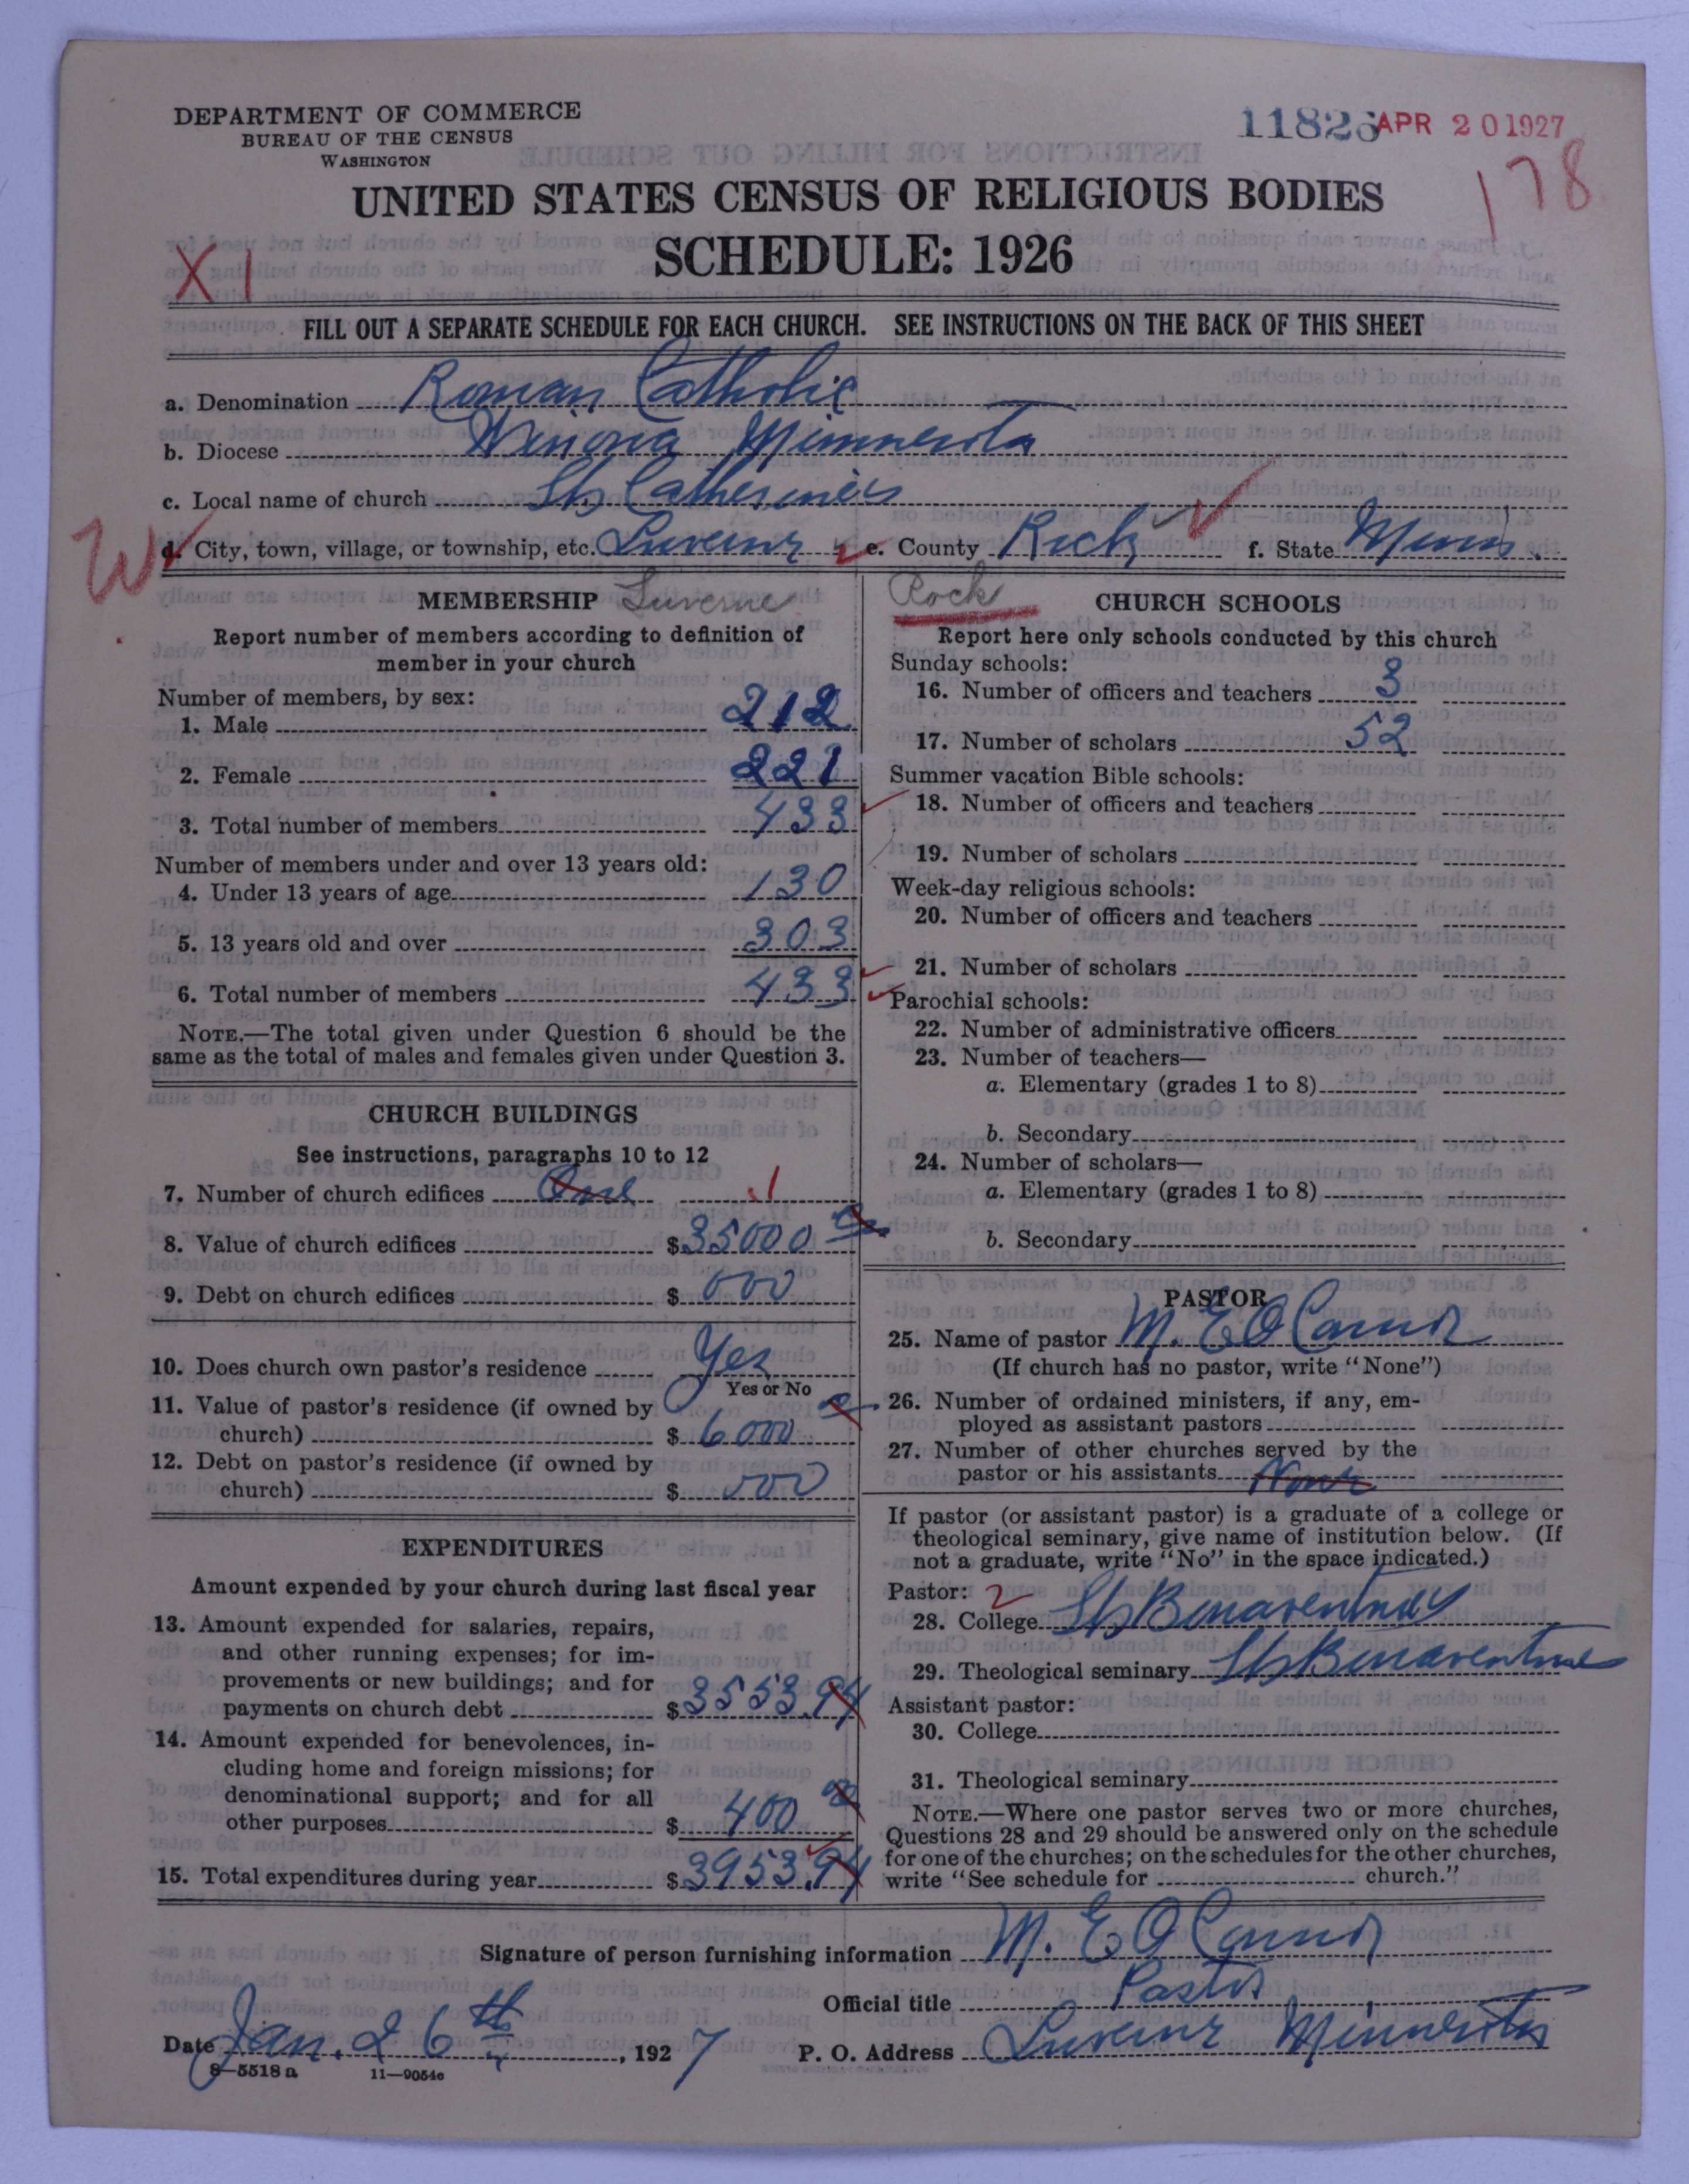 DEPARTMENT OF COMMERCE
BUREAU OF THE CENSUS
WASHINGTON
11826 APR 20 1927
178
UNITED STATES CENSUS OF RELIGIOUS BODIES
SCHEDULE: 1926
XI
FILL OUT A SEPARATE SCHEDULE FOR EACH CHURCH. SEE INSTRUCTIONS ON THE BACK OF THIS SHEET
a. Denomination Roman Catholic
b. Diocese Winona Minnesota
c. Local name of church St Catherines
W
d. City, town, village, or township, etc. Luverne e. County Rock f. State Minn.
MEMBERSHIP Luverne
Report number of members according to definition of
member in your church
Number of members, by sex:
1. Male 212
2. Female 221
3. Total number of members 433
Number of members under and over 13 years old:
4. Under 13 years of age 130
5. 13 years old and over 303
6. Total number of members 433
NOTE.—The total given under Question 6 should be the
same as the total of males and females given under Question 3.
CHURCH BUILDINGS
See instructions, paragraphs 10 to 12
7. Number of church edifices One 1
8. Value of church edifices $35000 00
9. Debt on church edifices $ 000
10. Does church own pastor's residence Yes
Yes or No
11. Value of pastor's residence (if owned by
church) $ 6000 00
12. Debt on pastor's residence (if owned by
church) $ 000
EXPENDITURES
Amount expended by your church during last fiscal year
13. Amount expended for salaries, repairs,
and other running expenses; for im-
provements or new buildings; and for
payments on church debt $3553.94
14. Amount expended for benevolences, in-
cluding home and foreign missions; for
denominational support; and for all
other purposes $ 400 00
15. Total expenditures during year $3953.94
Rock
CHURCH SCHOOLS
Report here only schools conducted by this church
Sunday schools:
16. Number of officers and teachers 3
17. Number of scholars 52
Summer vacation Bible schools:
18. Number of officers and teachers
19. Number of scholars
Week-day religious schools:
20. Number of officers and teachers
21. Number of scholars
Parochial schools:
22. Number of administrative officers
23. Number of teachers—
a. Elementary (grades 1 to 8)
b. Secondary
24. Number of scholars—
a. Elementary (grades 1 to 8)
b. Secondary
PASTOR
25. Name of pastor M. E O Connor
(If church has no pastor, write "None")
26. Number of ordained ministers, if any, em-
ployed as assistant pastors
27. Number of other churches served by the
pastor or his assistants None
If pastor (or assistant pastor) is a graduate of a college or
theological seminary, give name of institution below. (If
not a graduate, write "No" in the space indicated.)
Pastor: 2
28. College St Bonaventures
29. Theological seminary St Bonaventure
Assistant pastor:
30. College
31. Theological seminary
NOTE.—Where one pastor serves two or more churches,
Questions 28 and 29 should be answered only on the schedule
for one of the churches; on the schedules for the other churches,
write "See schedule for church."
Signature of person furnishing information M. E O Connor
Official title Pastor
Date Jan. 26th, 1927 P. O. Address Luverne Minnesota
8—5518a 11—9054c